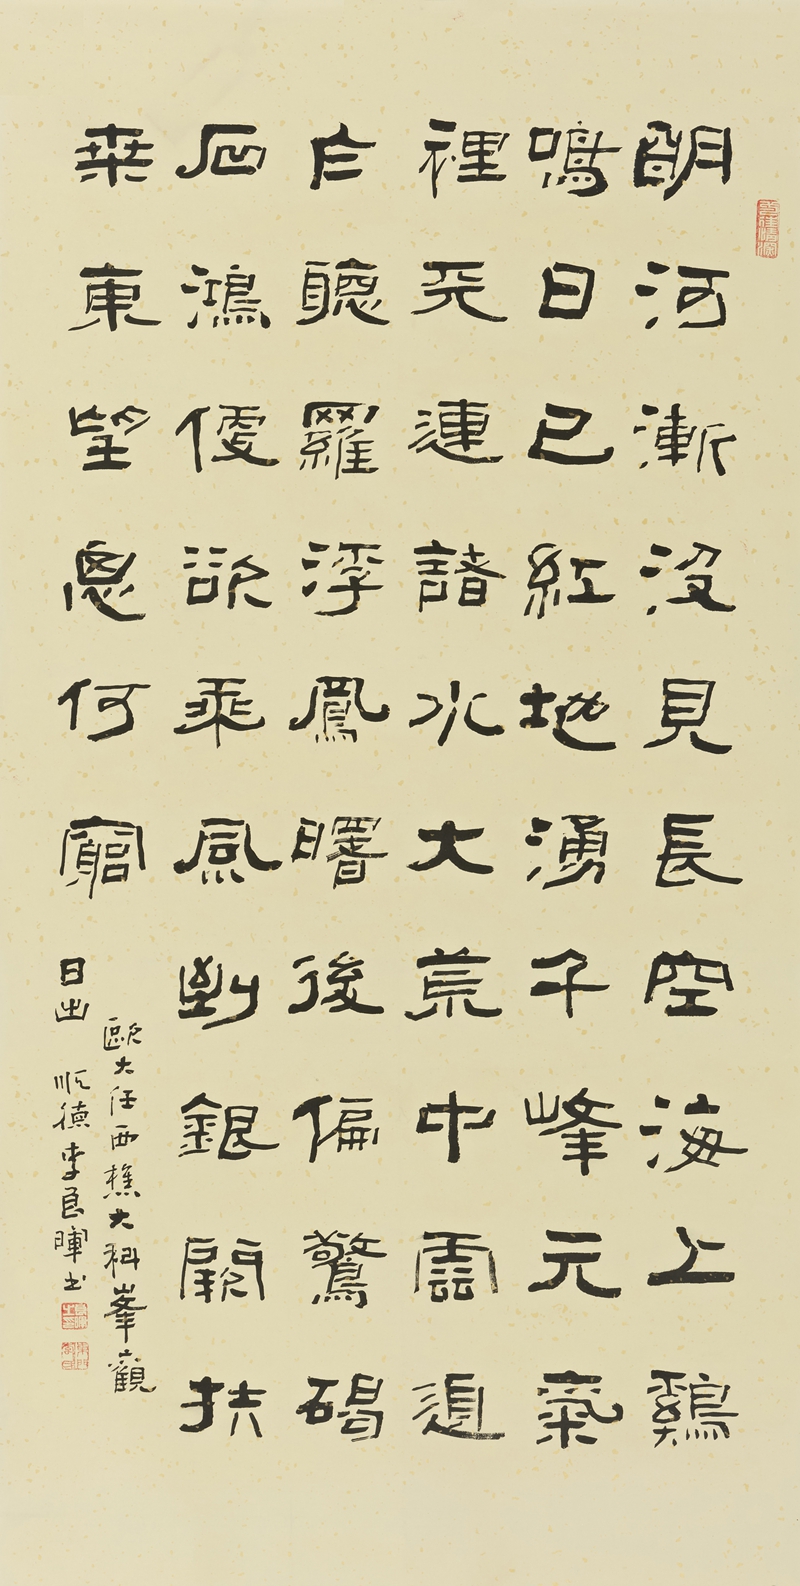 明河漸没見長空海上鷄
鳴日已紅地湧千峰元氣
裡天連諸水大荒中雲邊
乍聽羅浮鳳曙後偏驚碣
石鴻便欲乘風到銀闕扶
桒東望思何窮
歐大任西樵大科峯觀
日出 順德李良暉书